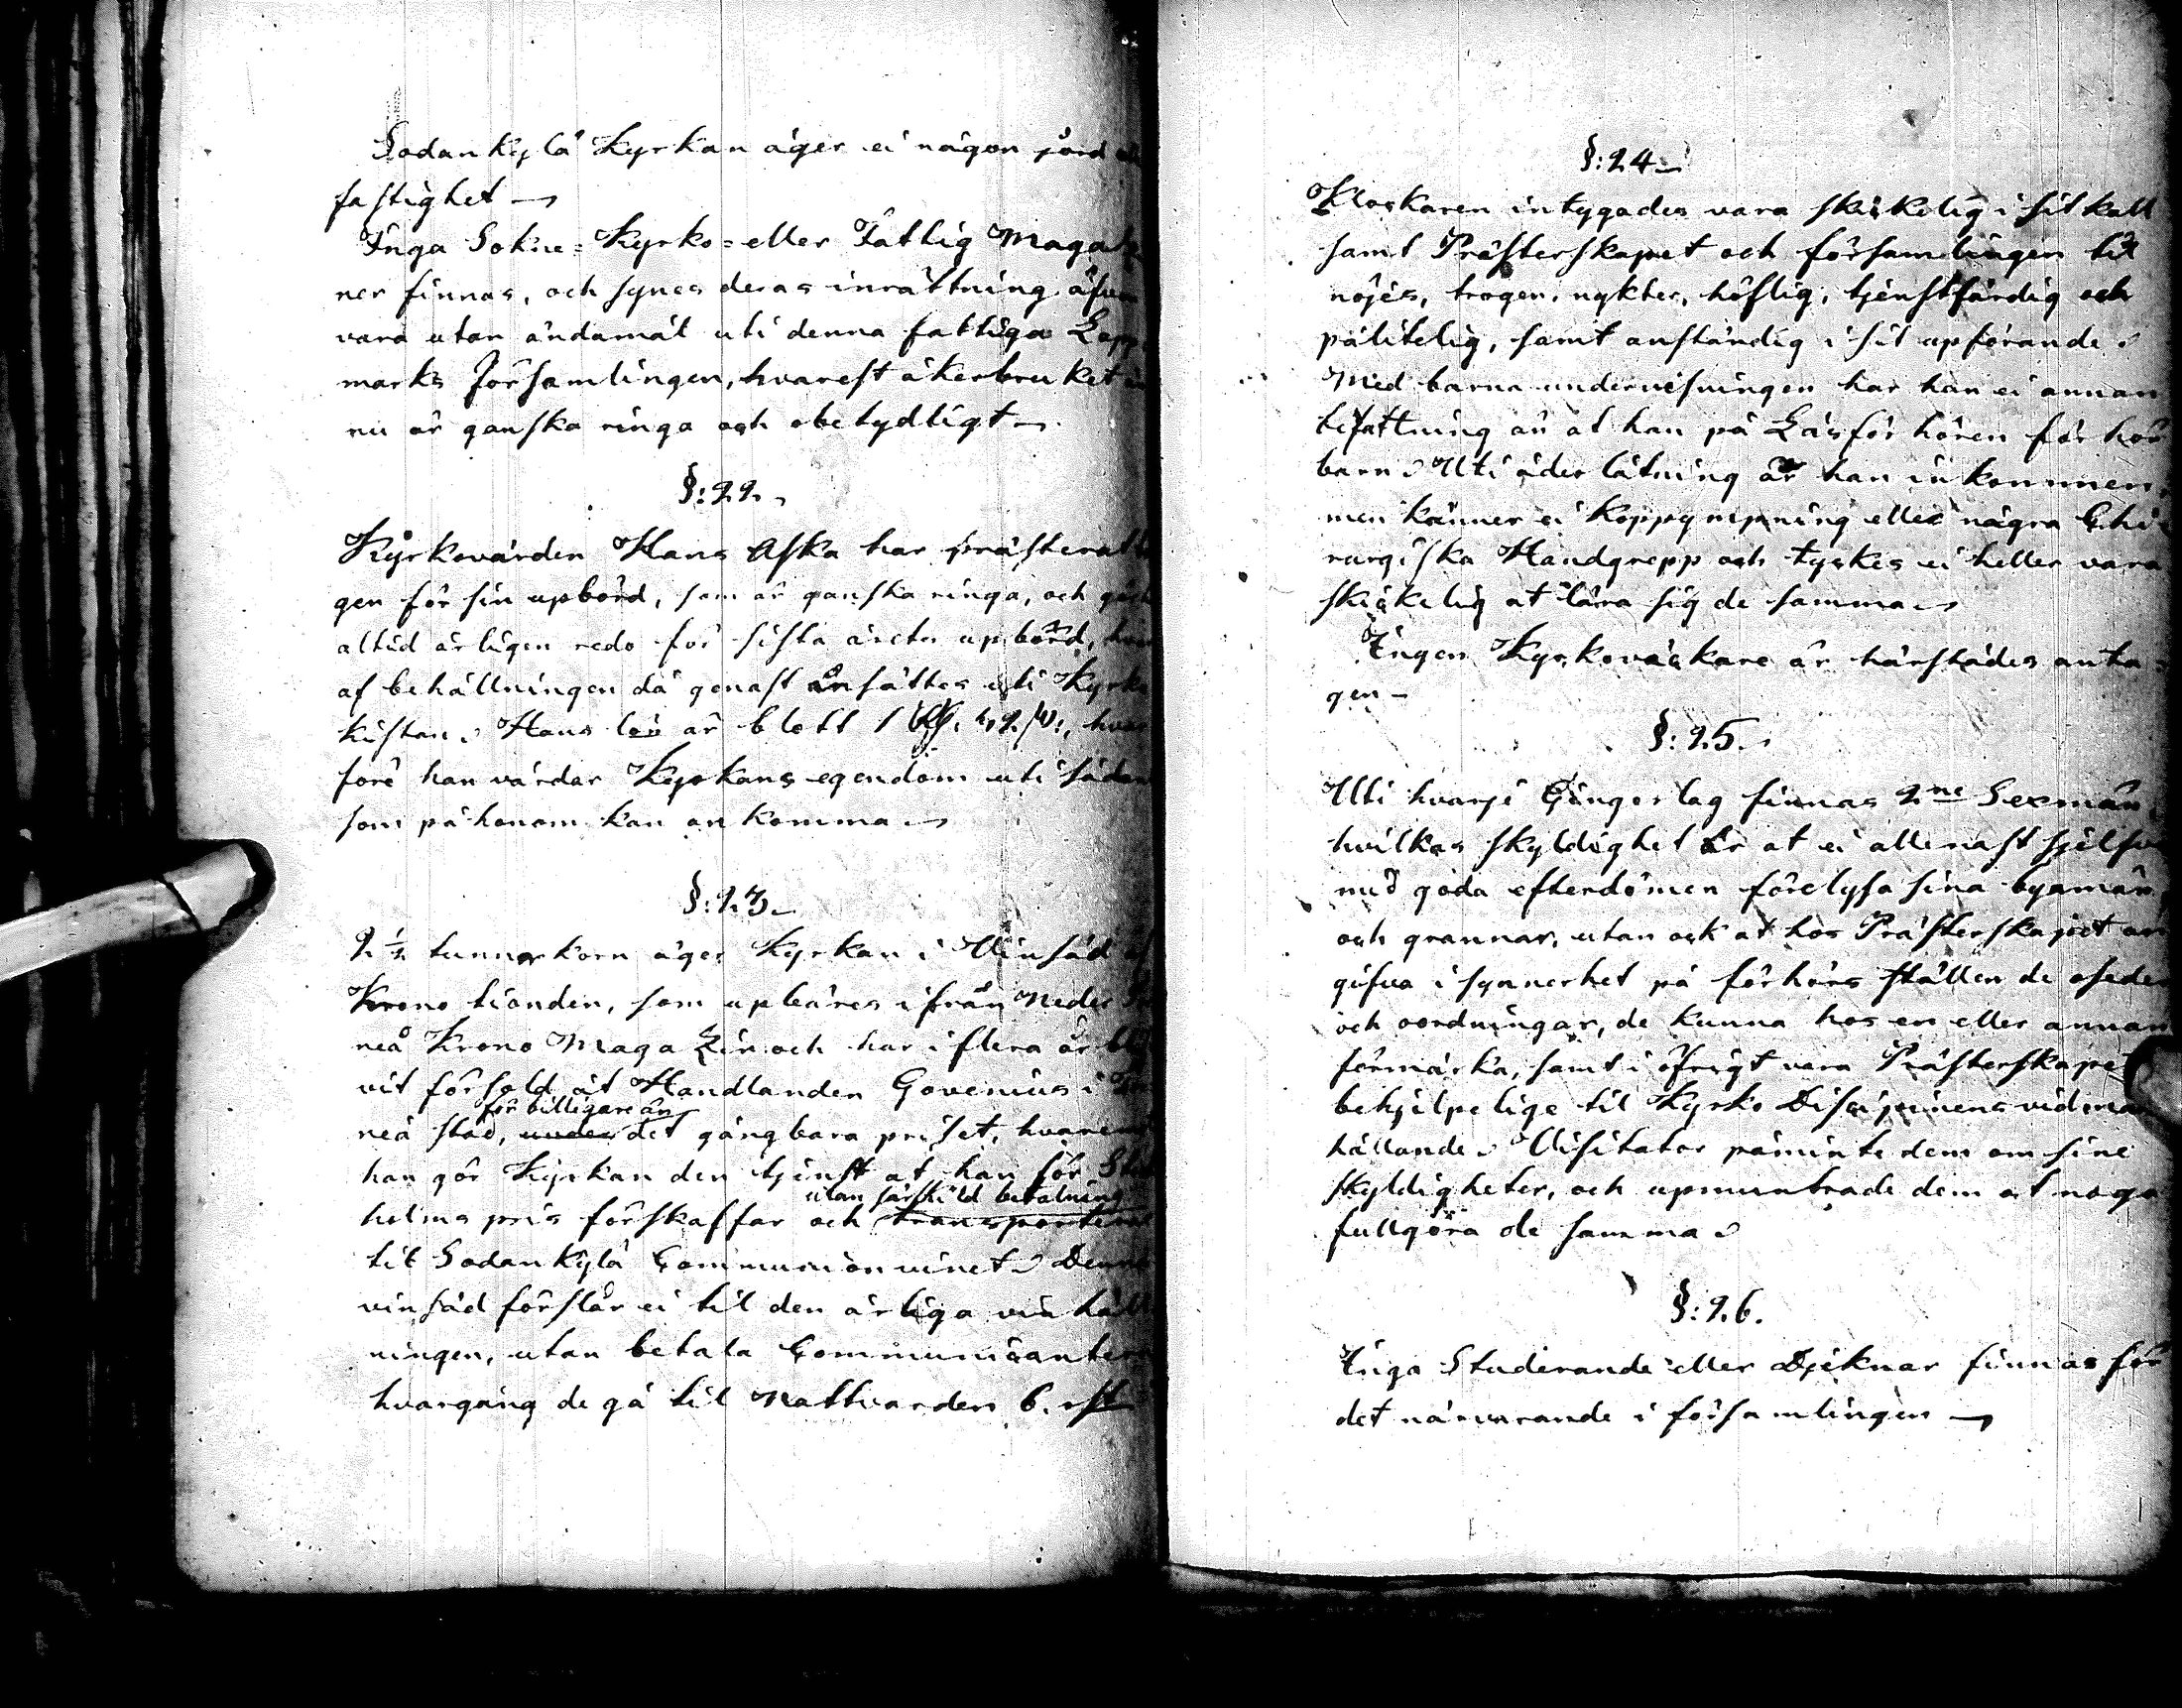 Sodankylä Kyrkan äger ei någon jord
fastighet
Inga Sokne= Kyrko= eller Fattig Maga
ner finnas, och synes deras inrättning äfven
vara utan ändamål uti denna fattiga Lapp
marks Församlingen, hvarest åkerbruket
nu är ganska ringa och obetydligt
§: 22.
Kyrkovärden Hans Aska har
gen för sin upbörd, som är ganska ringa, och
altid årligen redo för sista årets upbörd,
af behållningen då genast insättes uti Kyrko
kistan. Hans lön är blott 1
före han vårdar Kyrkans egendom uti sådan
som på honom kan ankomma
§: 23
2 1/2 tunnor korn äger Kyrkan i Vinsäd
Krono tionden, som upbäres ifrån Neder
neå Krono MagaZin och har i flera år
vit försåld åt Handlanden Govenius i
för billigare än
neå stad, under det gångbara priset,
han gör Kyrkan den tjenst at han för
utan särskild betalning
holms pris förskaffar och transporterar
til Sodankylä Communion vinet. Denna
vinsäd förslår ei til den årliga vin håll
ningen, utan betala Communicanterne
hvargång de gå til Nattvarden 6. rst
§: 24
Klockaren intygades vara skickelig i sit kall
samt Prästerskapet och församlingen til
nöjes, trogen, nykter, höflig, tjenstfärdig och
pålitelig, samt anständig i sit upförande.
Med barna undervisningen har han ei annan
befattning än at han på Läsförhören förhör
barn. Uti åderlåtning är han inkommen,
men känner ei koppympning eller några Chi
rurgiska Handgrepp och tyckes ei heller vara
skickelig at lära sig de samma
Ingen Kyrkoväckare är härstädes anta=
gen
§: 25.
Uti hvarje Gingerlag finnas 2ne Sexmän,
hvilkas skyldighet är at ei allenast sjelfva
med goda efterdömen förelysa sina byamän
och grannar, utan ock at hos Prästerskapet an
gifva i synnerhet på förhörs ställen de oseder
och oordningar, de kunna hos en eller annan
förmärka, samt i öfrigt vara Prästerskapet
behjelpelige til Kyrko Disciplinens vidmagt
hållande. Visitator påminte dem om sine
skyldigheter, och upmuntrade dem at noga
fullgöra de samma
§: 26.
Inga Studerande eller Djeknar finnas för
det närvarande i församlingen